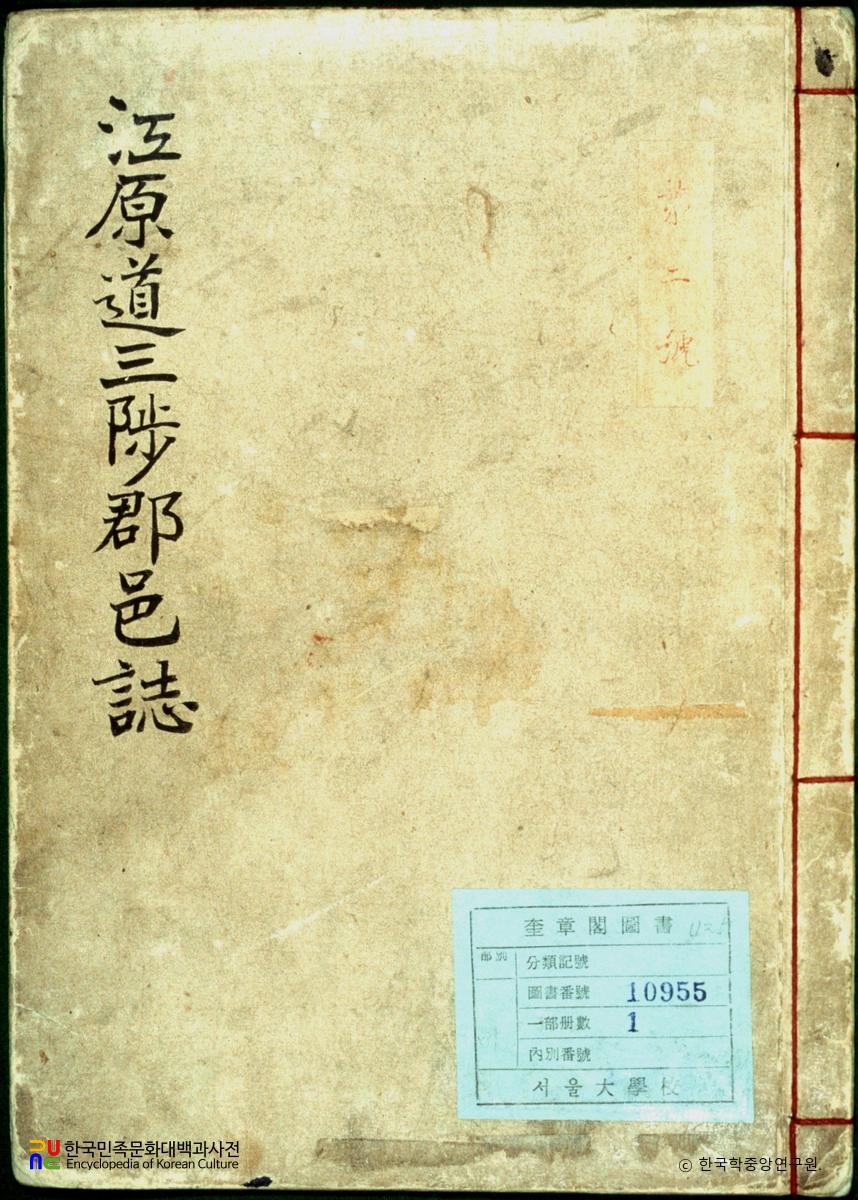 江原道三陟郡邑誌
第二號
奎章閣圖書
部別
分類記號
圖書番號 10955
一部册數 1
內別番號
서울大學校
한국민족문화대백과사전
Encyclopedia of Korean Culture
© 한국학중앙연구원